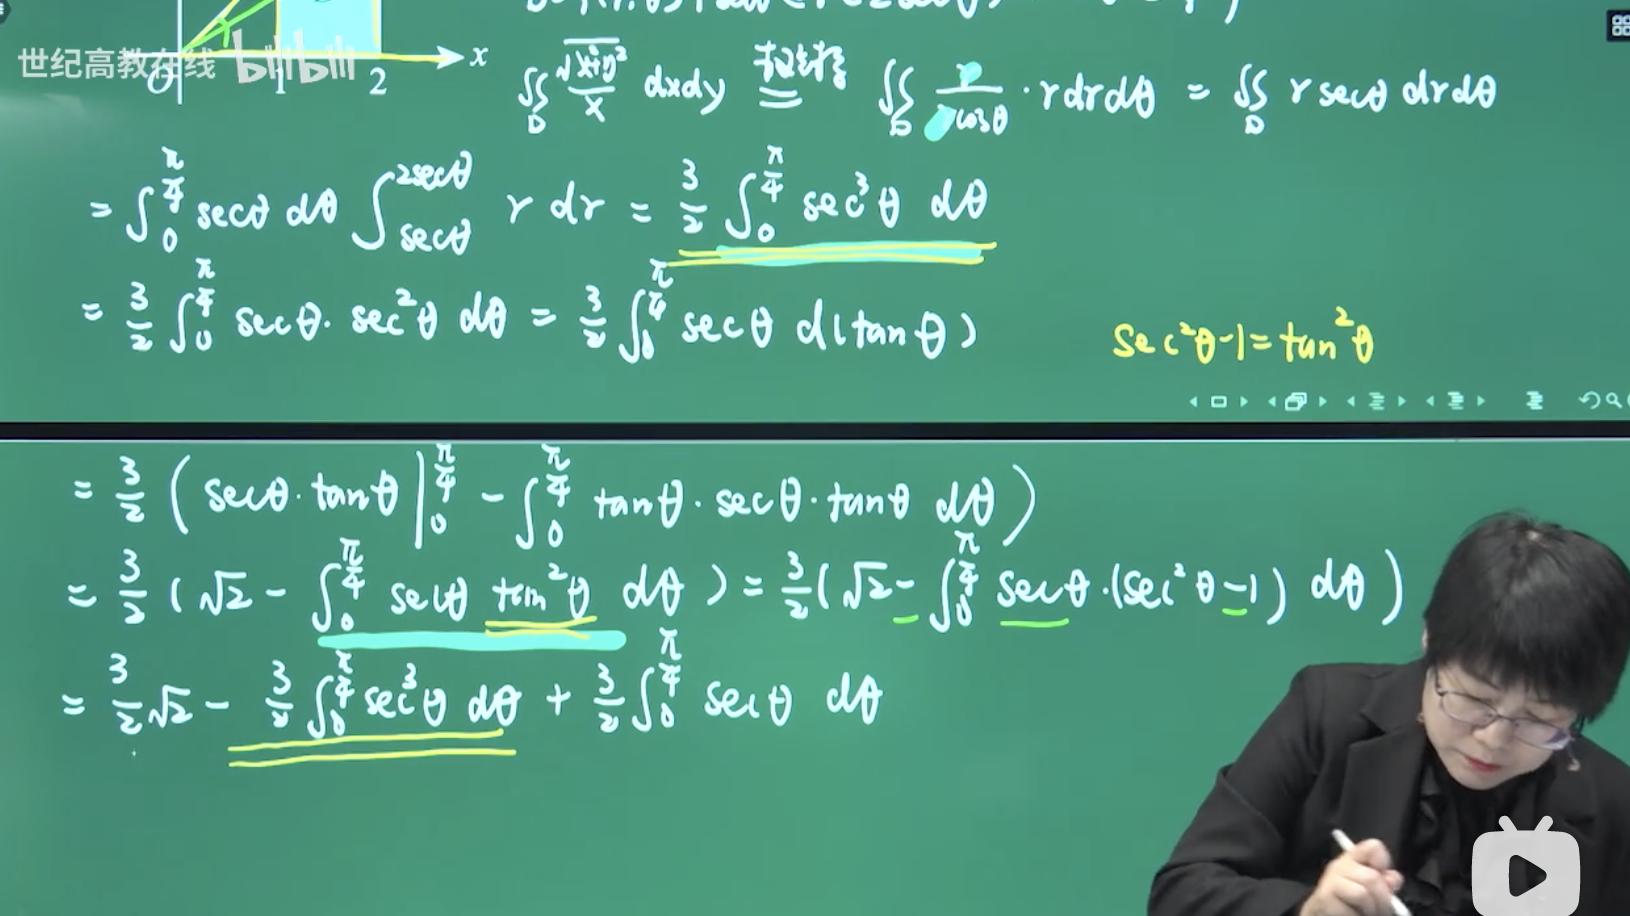 世纪高教在线 bilibili
O 1 2 x
∬_D √(x²+y²)/x dxdy 极坐标= ∬_D r/(r cosθ) · r dr dθ = ∬_D r secθ dr dθ
= ∫_0^{π/4} secθ dθ ∫_{secθ}^{2secθ} r dr = 3/2 ∫_0^{π/4} sec³θ dθ
= 3/2 ∫_0^{π/4} secθ · sec²θ dθ = 3/2 ∫_0^{π/4} secθ d(tanθ)
sec²θ-1=tan²θ
= 3/2 ( secθ · tanθ |_0^{π/4} - ∫_0^{π/4} tanθ · secθ · tanθ dθ )
= 3/2 ( √2 - ∫_0^{π/4} secθ tan²θ dθ ) = 3/2 ( √2 - ∫_0^{π/4} secθ · (sec²θ-1) dθ )
= 3/2 √2 - 3/2 ∫_0^{π/4} sec³θ dθ + 3/2 ∫_0^{π/4} secθ dθ